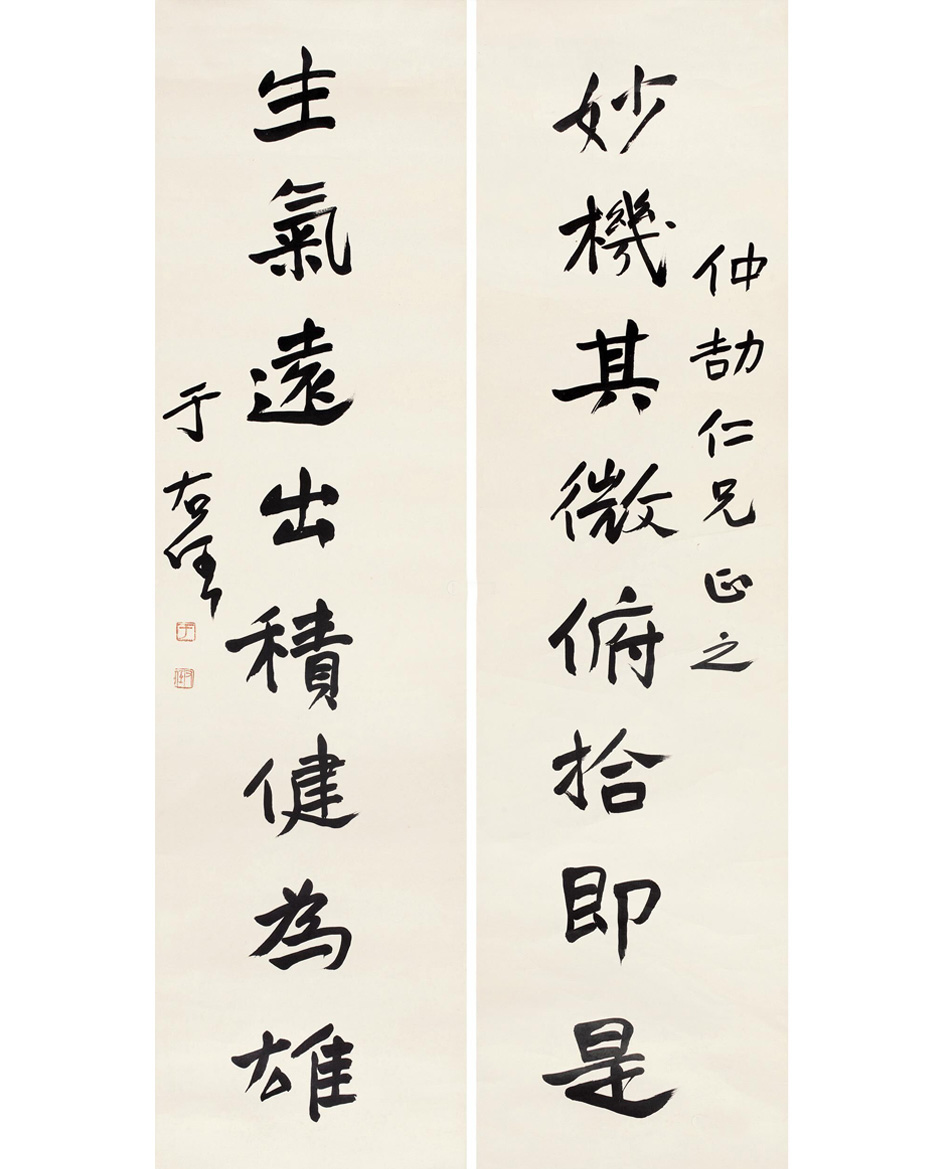 仲劼仁兄正之
妙機其微俯拾即是
生氣遠出積健為雄
于右任
于